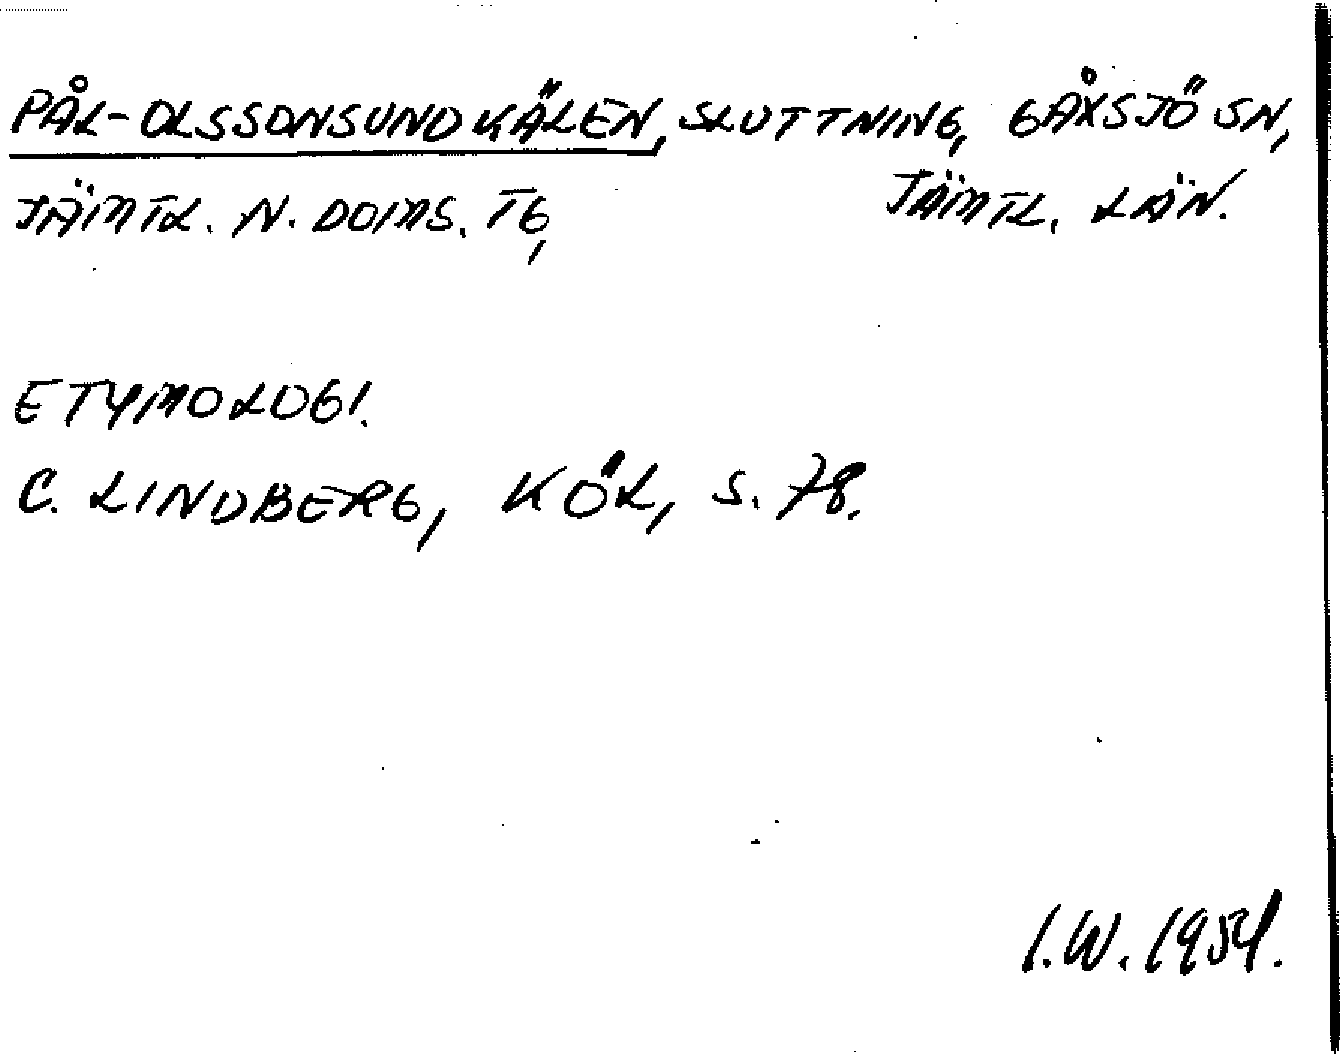 PÅL-OLSSONSUNDKÄLEN, SLUTTNING, GÅXSJÖ SN,
JÄMTL. N. DOMS. TG, JÄMTL. LÄN.
ETYMOLOGI.
C. LINDBERG, KÖL, S. 78.
I.W. 1954.